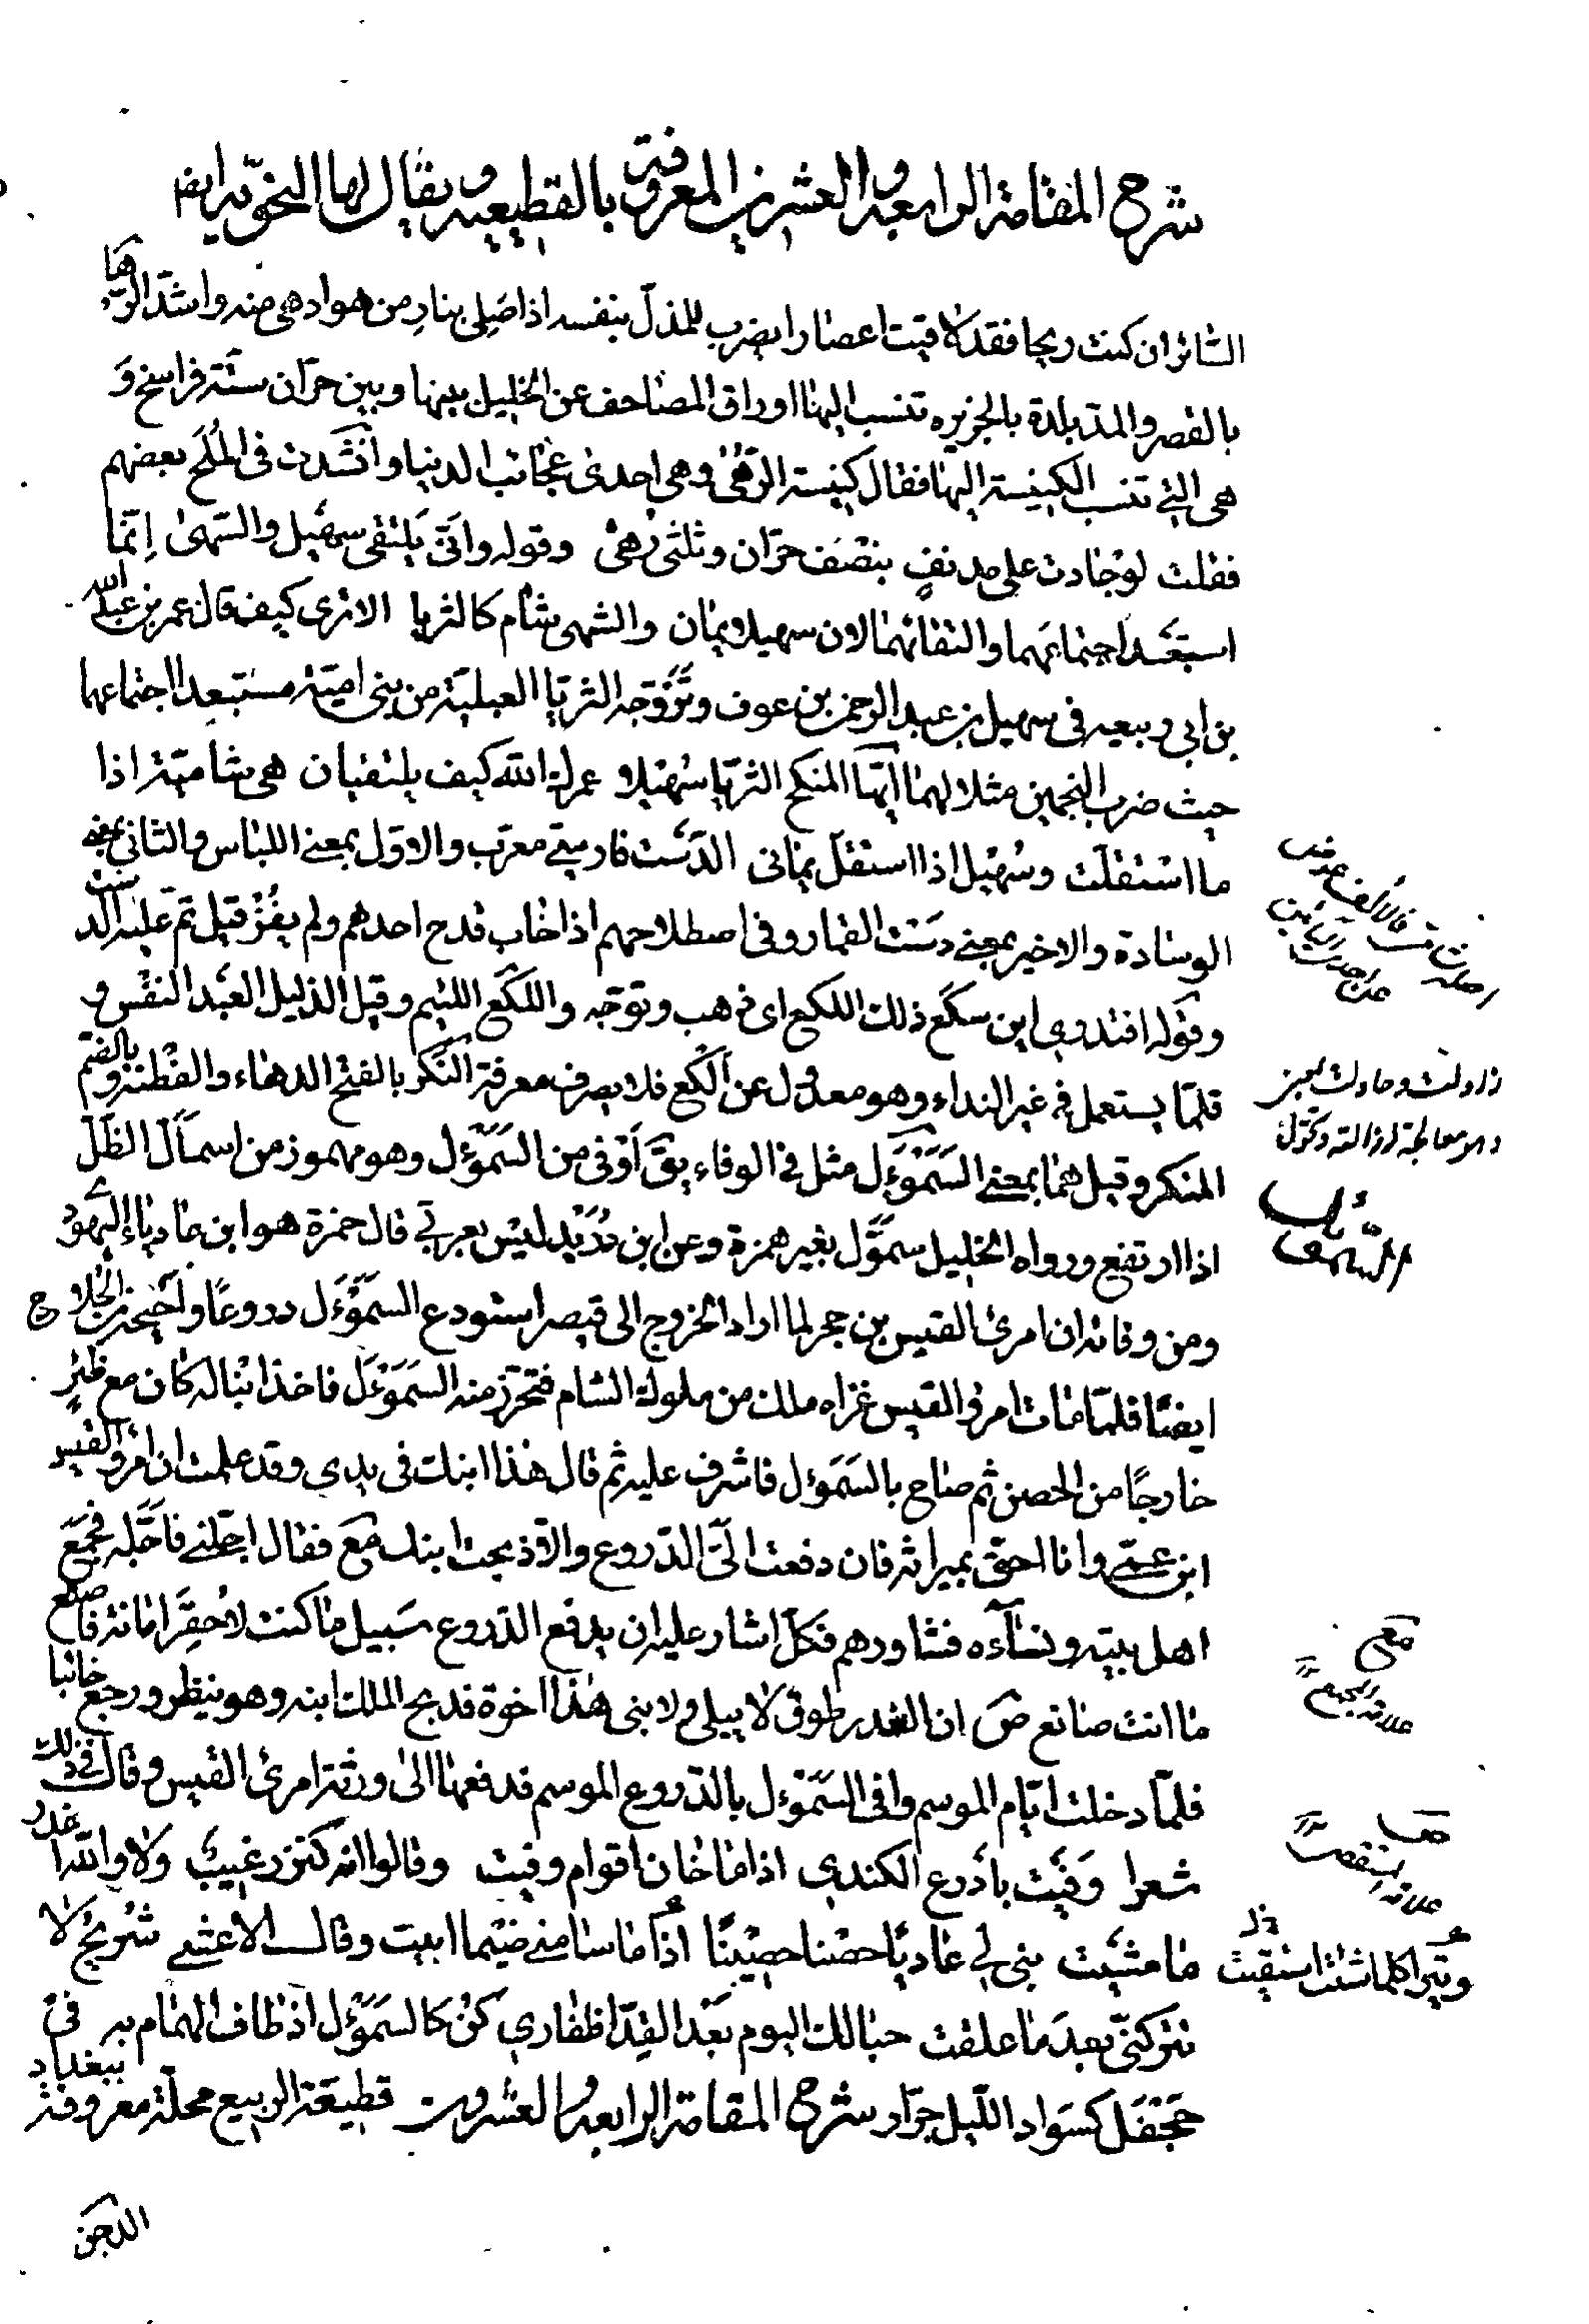 شرح المقامة الرابعة والعشرين المعروفة بالقطيعية ويقال لها النحوية ايضا
السائر ان كنت ريحا فقد لاقيت اعصارا يضرب للمذل بنفسه اذا صلى بنار من هو ادهى منه واشد الرها
بالقصر والمد بلدة بالجزيره تنسب اليها اوراق المصاحف عن الخليل بينها وبين حران ستة فراسخ و
هى التي تنسب الكنيسة اليها فقال كنيسة الرهى وهي احدى عجائب الدنيا وانشدت فى الملح بعضهم
فقلت لو جادت على مدنف بنصف حران وثلثى رهى وقوله وانى يلتقى سهيل والسهى انما
استبعد اجتماعهما والتقائهما لان سهيلا يمان والسهى شام كالثريا الا ترى كيف قال عمر بن عبد الله
بن ابى ربيعه فى سهيل بن عبد الرحمن بن عوف وتزوجه الثريا العبلية من بنى امية مستبعدا اجتماعهما
حيث ضرب النجمين مثلا لهما ايها المنكح الثريا سهيلا عمرك الله كيف يلتقيان هى شامية اذا
ما استقلت وسهيل اذا استقل يمانى الدست فارسي معرب والاول بمعنى اللباس والثانى بمعنى
الوسادة والاخير بمعنى دست القمار وفى اصطلاحهم اذا خاب قدح احدهم ولم يفز قيل تم عليه الدست
وقوله افتدرى اين سكع ذلك اللكع اى ذهب وتوجه واللكع اللئيم وقيل الذليل العبد النفس و
قلما يستعمل فى غير النداء وهو معدول عن الكع فلا يصرف معرفة النكر بالفتح الدهاء والفطنة وبالضم
المنكر وقيل هما بمعنى السموءل مثل فى الوفاء يق اوفى من السموءل وهو مهموز من اسمأل الظل
اذا ارتفع ورواه الخليل سمول بغير همزة وعن ابن دريد ليس بعربي قال حمزة هو ابن عادياء اليهودي
ومن وفائه ان امرئ القيس بن حجر لما اراد الخروج الى قيصر استودع السموءل دروعا واحيحة بن الجلاح
ايضا فلما مات امرؤ القيس غزاه ملك من ملوك الشام فتحرز منه السموءل فاخذ ابنا له كان مع ظئر
خارجا من الحصن ثم صاح بالسموءل فاشرف عليه ثم قال هذا ابنك فى يدى وقد علمت ان امرؤ القيس
ابن عمي وانا احق بميراثه فان دفعت الى الدروع والا ذبحت ابنك مع فقال اجلنى فاجله فجمع
اهل بيته ونساءه فشاورهم فكل اشار عليه ان يدفع الدروع سبيل ما كنت لاحقر امانة فاصنع
ما انت صانع ص ان الغدر طوق لا يبلى ولابنى هذا اخوة فدبح الملك ابنه وهو ينظر ورجع خائبا
فلما دخلت ايام الموسم وافى السموءل بالدروع الموسم فدفعها الى ورثة امرئ القيس وقال فى ذلك
شعرا وفيت بادرع الكندى اذا ما خان اقوام وفيت وقالوا انه كنز رغيب ولا والله اغدر
ما مشيت بنى لى عاديا حصنا حصينا اذا ما سامنى ضيما ابيت وقال الاعشى شريح لا
تتركنى بعد ما علقت حبالك اليوم بعد القد اظفارى كن كالسموءل اذ طاف الهمام به فى
جحفل كسواد الليل جرار شرح المقامة الرابعة والعشرون قطيعة الربيع محلة معروفة ببغداد
الدجن
السموأل
معى
وبئرا كلما شئت استقيت